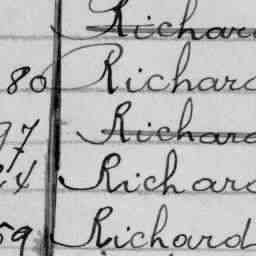 Richard
80 Richard
97 Richard
24 Richard
59 Richard